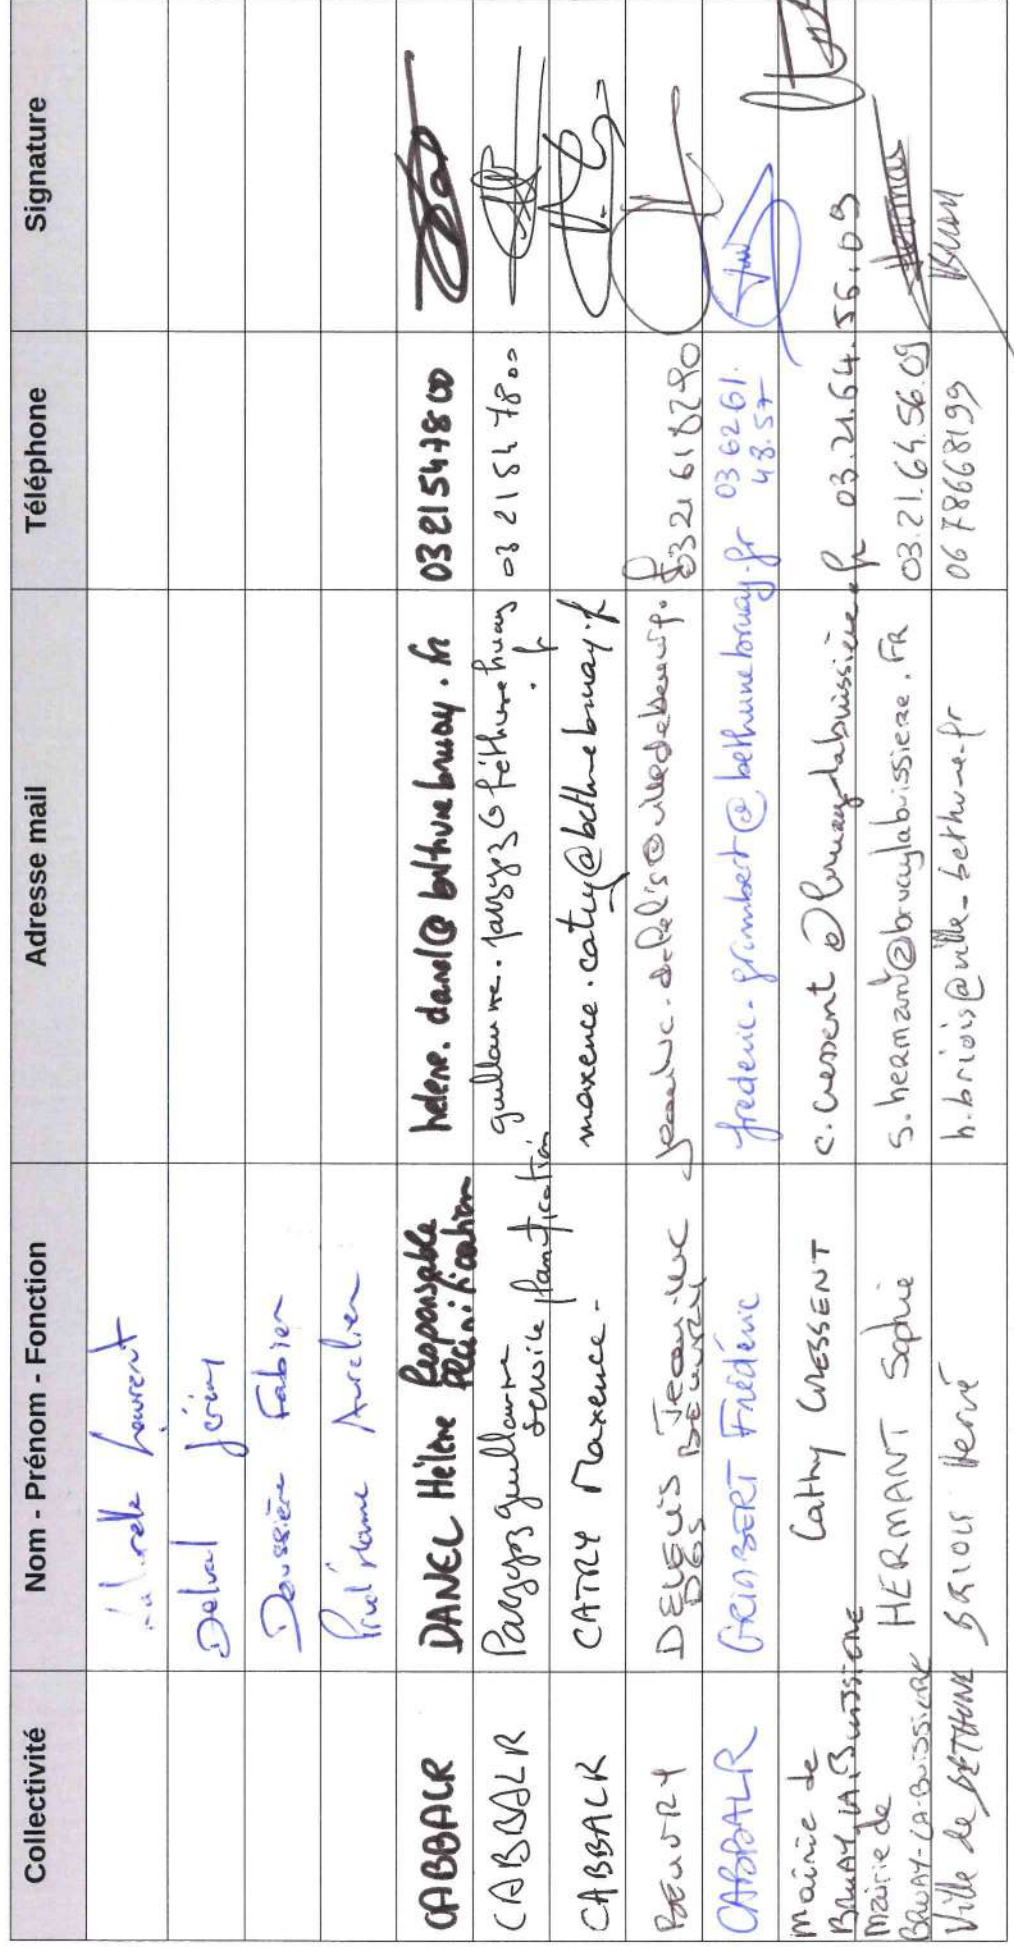 Collectivité Nom - Prénom - Fonction Adresse mail Téléphone Signature
Laurent
Delval Jérémy
Doussière Fabien
Prud'Homme Aurélien
CABBALR DANEL Hélène Responsable Planification helene.danel@bethunebruay.fr 0321547800
CABBALR Guillaume service planification 03 21 54 78 00
CABBALR CATRY Maxence - maxence.catry@bethunebruay.fr
BEUVRY DELELIS Jean-Luc DGS BEUVRY 0321618290
CABBALR GRIMBERT Frédéric frederic.grimbert@bethunebruay.fr 03 62 61. 48.57
Mairie de BRUAY LA BUISSIERE Cathy CRESSENT c.cressent@bruaylabuissiere.fr 03.21.64.56.09
Mairie de BRUAY-LA-BUISSIERE HERMANT Sophie s.hermant@bruaylabuissiere.FR 03.21.64.56.09
Ville de BETHUNE BRIOIS Hervé h.briois@ville-bethune.fr 06 78668199